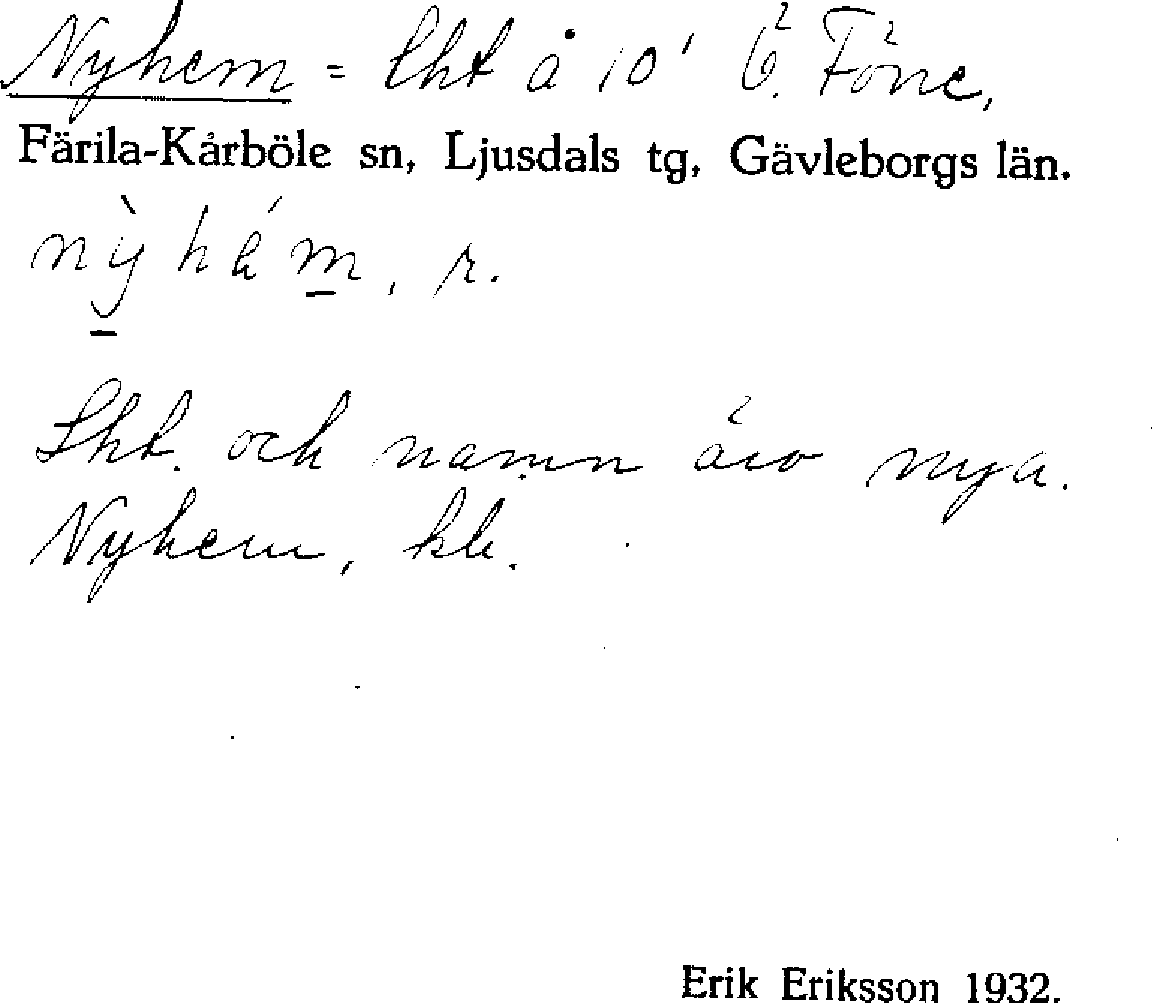 Nyhem = lht å 10¹ Ö. Föne,
Färila-Kårböle sn, Ljusdals tg, Gävleborgs län.
nỳhém, r.
Lht. och namn äro nya.
Nyhem, kb.
Erik Eriksson 1932.